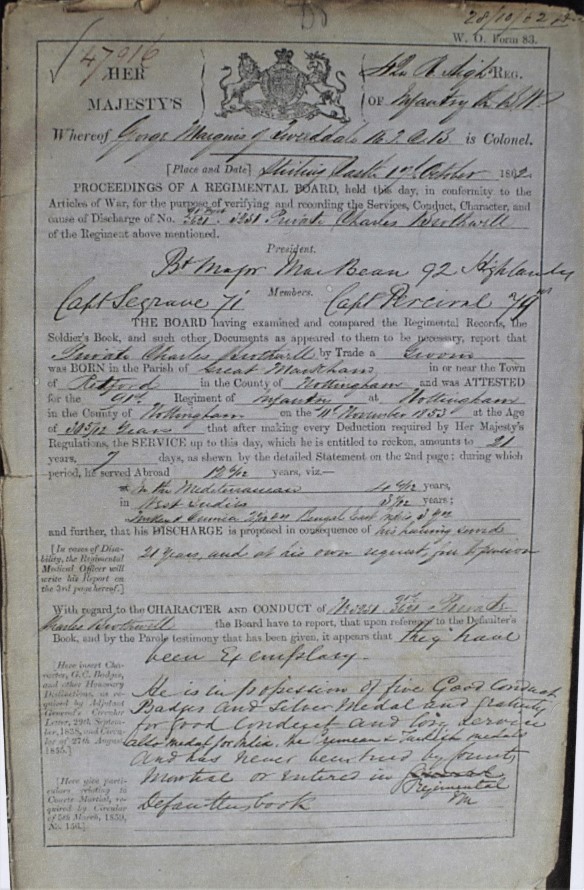 28/10/62
W. O. Form 83.
47916
HER 42d R. High REG.
MAJESTY'S OF Infantry The B. W.
Whereof George Marquis of Tweeddale K.T. C.B is Colonel.
[Place and Date] Stirling Castle 1st October 1862
PROCEEDINGS OF A REGIMENTAL BOARD, held this day, in conformity to the
Articles of War, for the purpose of verifying and recording the Services, Conduct, Character, and
cause of Discharge of No. 3251 Private Charles Brothwell
of the Regiment above mentioned.
President.
Bt Major MacBean 92 Highlanders
Members.
Capt Segrave 71 Capt Perceval 79
THE BOARD having examined and compared the Regimental Records, the
Soldier's Book, and such other Documents as appeared to them to be necessary, report that
Private Charles Brothwell by Trade a Groom
was BORN in the Parish of Great Markham in or near the Town
of Retford in the County of Nottingham and was ATTESTED
for the 91st Regiment of Infantry at Nottingham
in the County of Nottingham on the November at the Age
of Years that after making every Deduction required by Her Majesty's
Regulations, the SERVICE up to this day, which he is entitled to reckon, amounts to 21
years, 7 days, as shewn by the detailed Statement on the 2nd page; during which
period, he served Abroad years, viz.—
In the Mediterranean years,
in West Indies years;
Turkey & Crimea Bengal East Indies
and further, that his DISCHARGE is proposed in consequence of his having served
[In cases of Disability, the Regimental Medical Officer will write his Report on the 3rd page hereof.]
21 years, and at his own request, free to pension
With regard to the CHARACTER and CONDUCT of No 3251 Private
Charles Brothwell the Board have to report, that upon reference to the Defaulter's
Book, and by the Parole testimony that has been given, it appears that they have
been Exemplary.
[Here insert Character, G.C. Badges, and other Honorary Distinctions, as required by Adjutant General's Circular Letter, 29th September, 1838, and Circular of 27th August 1855.]
He is in possession of five Good Conduct
Badges and Silver Medal and Gratuity
for Good Conduct and long service
also medal for India, the Crimean & Turkish medals
And has never been tried by Court
[Here give particulars relating to Courts Martial, required by Circular of 5th March, 1830, No. 156.]
Martial or entered in
Regimental
Defaulters book